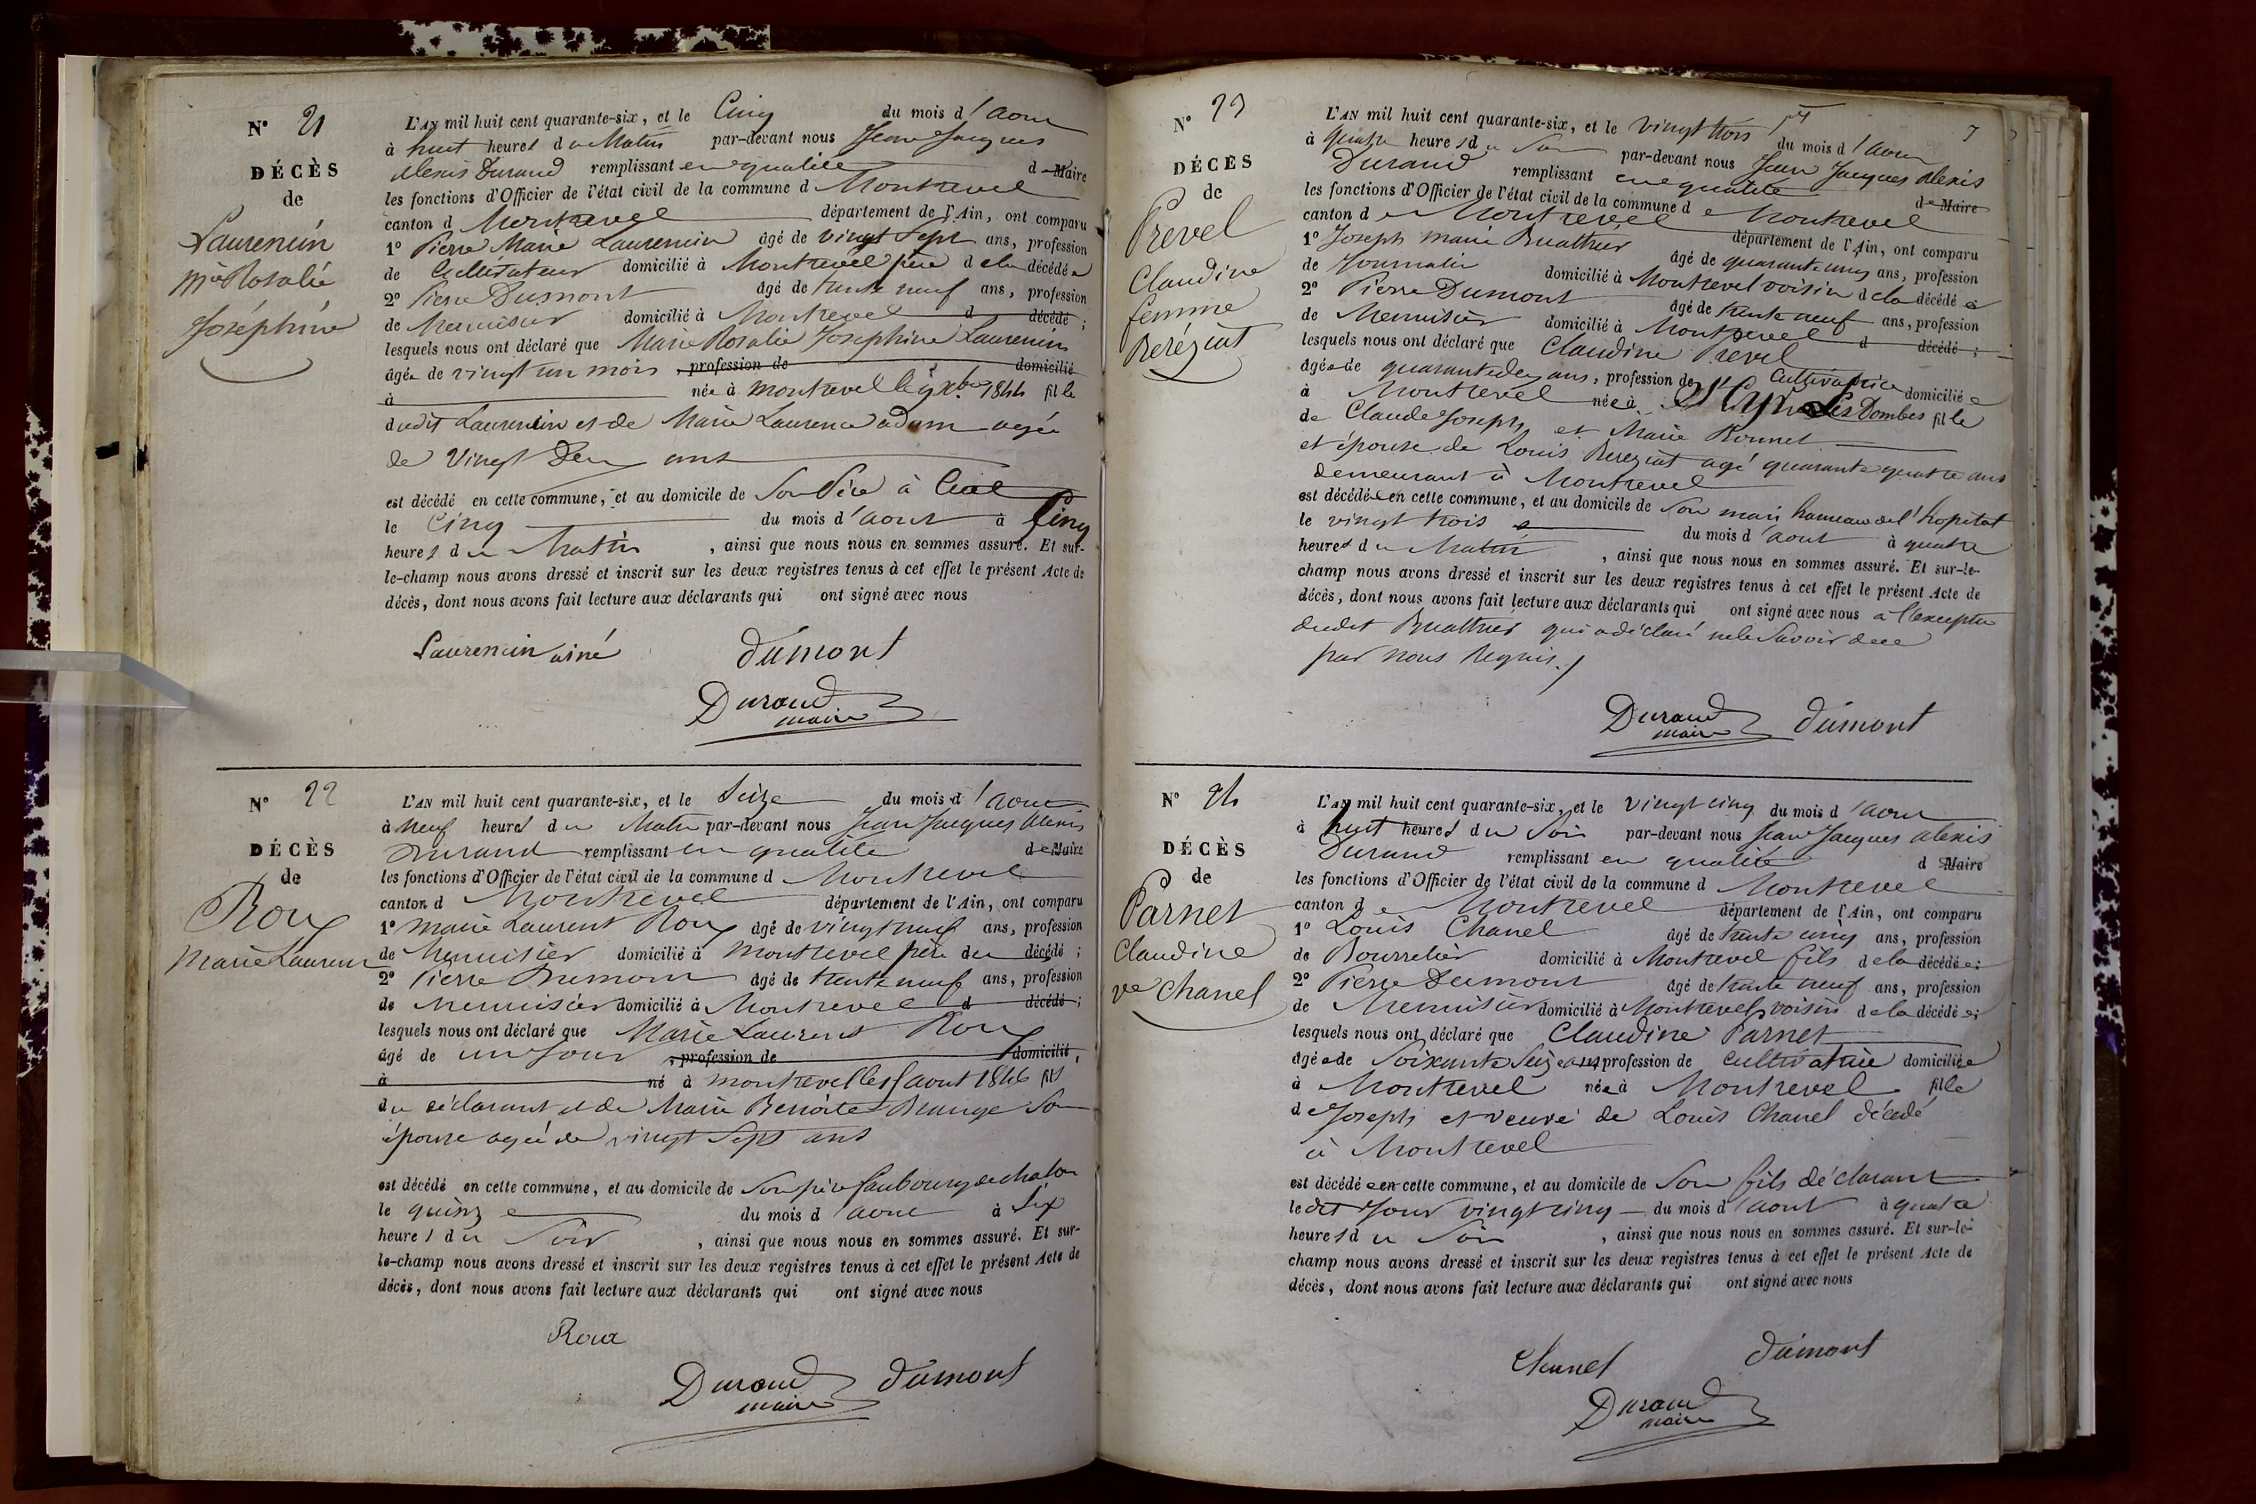 N° 21
DÉCÈS
de
Laurencin
Mie Rosalie
Joséphine
L'AN mil huit cent quarante-six, et le Cinq du mois d'aout
à huit heures du Matin par-devant nous Jean Jacques
alexis Durand remplissant en qualité de Maire
les fonctions d'Officier de l'état civil de la commune d Montrevel
canton d Montrevel département de l'Ain, ont comparu
1° Pierre Marie Laurencin âgé de vingt Sept ans, profession
de Cultivateur domicilié à Montrevel père de la décédée
2° Pierre Dumont âgé de trente neuf ans, profession
de Menuisier domicilié à Montrevel d décédé ;
lesquels nous ont déclaré que Marie Rosalie Josephine Laurencin
âgée de vingt un mois , profession de domicilié
à née à montrevel le 9 Xbre 1844 fille
dudit Laurencin et de Marie Laurence adam agée
de Vingt Deux ans
est décédé en cette commune, et au domicile de Son Père à
le Cinq du mois d'aout à Cinq
heures du Matin , ainsi que nous nous en sommes assuré. Et sur-
le-champ nous avons dressé et inscrit sur les deux registres tenus à cet effet le présent Acte de
décès, dont nous avons fait lecture aux déclarants qui ont signé avec nous
Laurencin ainé Dumont
Durand
maire
N° 22
DÉCÈS
de
Roux
Marie Laurent
L'AN mil huit cent quarante-six, et le Seize du mois d'aout
à Neuf heures du Matin par-devant nous Jean Jacques Alexis
Durand remplissant en qualité de Maire
les fonctions d'Officier de l'état civil de la commune d Montrevel
canton d Montrevel département de l'Ain, ont comparu
1° Marie Laurent Roux âgé de vingt neuf ans, profession
de Menuisier domicilié à Montrevel père du décédé ;
2° Pierre Dumont âgé de trente neuf ans, profession
de Menuisier domicilié à Montrevel d décédé ;
lesquels nous ont déclaré que Marie Laurent Roux
âgé de un Jour , profession de domicilié,
à né à montrevel le 15 aout 1846 fils
du déclarant et de Marie Benoite Beauge Son
épouse agée de vingt Sept ans
est décédé en cette commune, et au domicile de Son père faubourg de chalon
le quinze du mois d'aout à Six
heures du Soir , ainsi que nous nous en sommes assuré. Et sur-
le-champ nous avons dressé et inscrit sur les deux registres tenus à cet effet le présent Acte de
décès, dont nous avons fait lecture aux déclarants qui ont signé avec nous
Roux
Durand Dumont
maire
7
N° 23
DÉCÈS
de
Prevel
Claudine
femme
Beréziat
L'AN mil huit cent quarante-six, et le vingt trois du mois d'aout
à quatre heures du Soir par-devant nous Jean Jacques Alexis
Durand remplissant en qualité de Maire
les fonctions d'Officier de l'état civil de la commune de Montrevel
canton de Montrevel département de l'Ain, ont comparu
1° Joseph marie Buathier âgé de quarante cinq ans, profession
de Journalier domicilié à Montrevel voisin de la décédée
2° Pierre Dumont âgé de trente neuf ans, profession
de Menuisier domicilié à Montrevel d décédé ;
lesquels nous ont déclaré que Claudine Prevel
âgée de quarante deux ans, profession de Cultivatrice domiciliée
à Montrevel née à St Cyr Les Dombes fille
de Claude Joseph et Marie Ronnet
et épouse de Louis Bereziat agé quarante quatre ans
demeurant à Montrevel
est décédée en cette commune, et au domicile de Son mari hameau de l'hopital
le vingt trois du mois d'aout à quatre
heures du Matin , ainsi que nous nous en sommes assuré. Et sur-le-
champ nous avons dressé et inscrit sur les deux registres tenus à cet effet le présent Acte de
décès, dont nous avons fait lecture aux déclarants qui ont signé avec nous a l'exception
dudit Buathier qui a déclaré ne le Savoir de ce
par nous Requis.
Durand Dumont
maire
N° 24
DÉCÈS
de
Parnet
Claudine
ve Chanel
L'AN mil huit cent quarante-six, et le vingt cinq du mois d'aout
à huit heures du Soir par-devant nous Jean Jacques alexis
Durand remplissant en qualité d Maire
les fonctions d'Officier de l'état civil de la commune d Montrevel
canton de Montrevel département de l'Ain, ont comparu
1° Louis Chanel âgé de trente cinq ans, profession
de Bourrelier domicilié à Montrevel fils de la décédée ;
2° Pierre Dumont âgé de trente neuf ans, profession
de Menuisier domicilié à Montrevel voisin de la décédée ;
lesquels nous ont déclaré que Claudine Parnet
âgée de Soixante Seize ans profession de cultivatrice domiciliée
à Montrevel née à Montrevel fille
de Joseph et veuve de Louis Chanel décédé
à Montrevel
est décédée en cette commune, et au domicile de Son fils déclarant
le dit Jour vingt cinq du mois d'aout à quatre
heures du Soir , ainsi que nous nous en sommes assuré. Et sur-le-
champ nous avons dressé et inscrit sur les deux registres tenus à cet effet le présent Acte de
décès, dont nous avons fait lecture aux déclarants qui ont signé avec nous
Chanel Dumont
Durand
maire